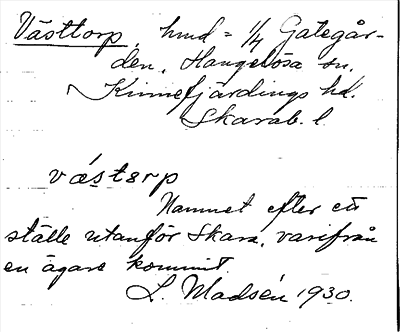 Västtorp, hmd = 1/4 Gategår-
den, Hangelösa sn,
Kinnefjärdings hd.
Skarab. l.
västərp
Namnet efter ett
ställe utanför Skara, varifrån
en ägare kommit.
L. Madsén 1930.